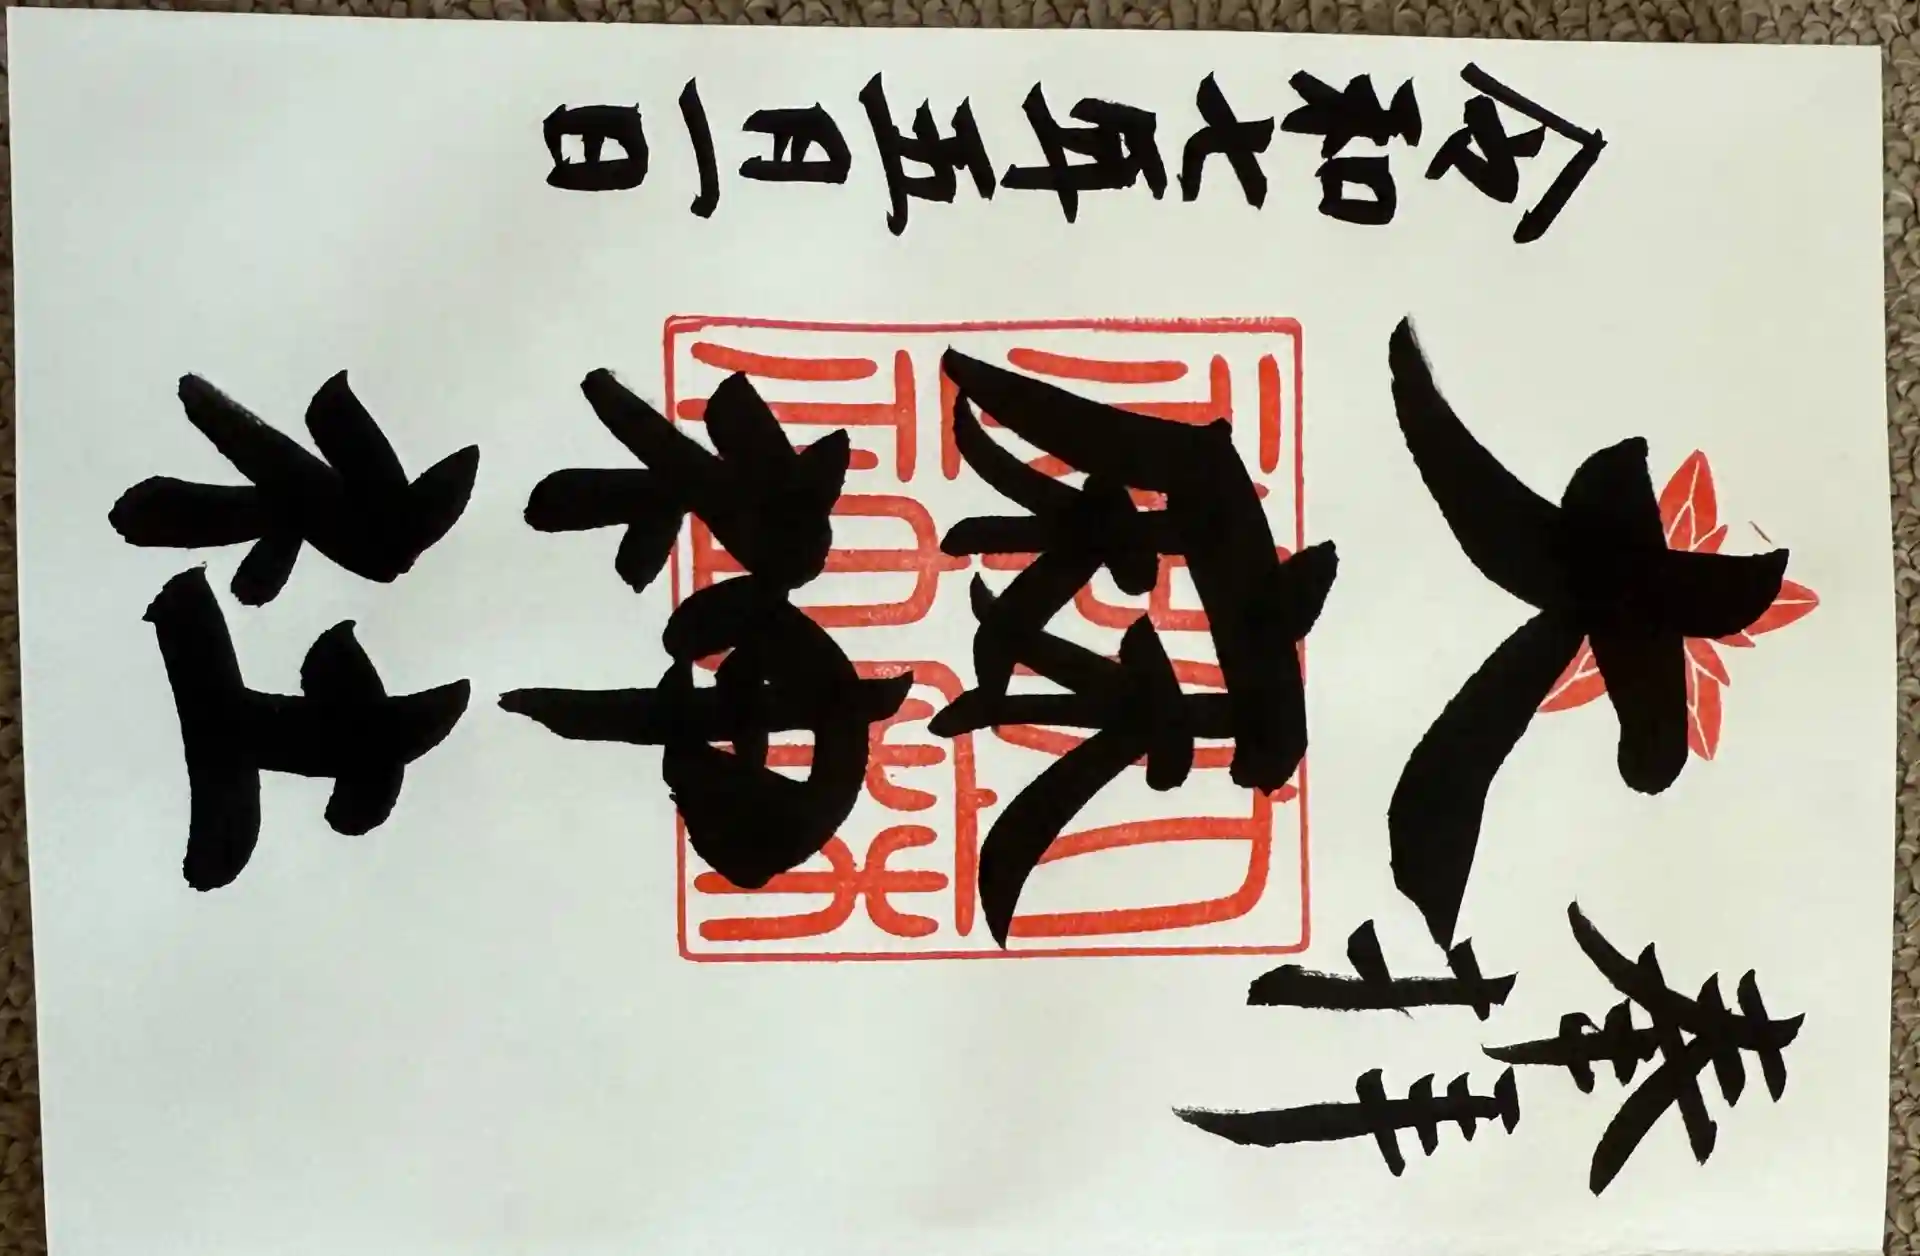 奉拝
大麻神社
令和七年五月一日